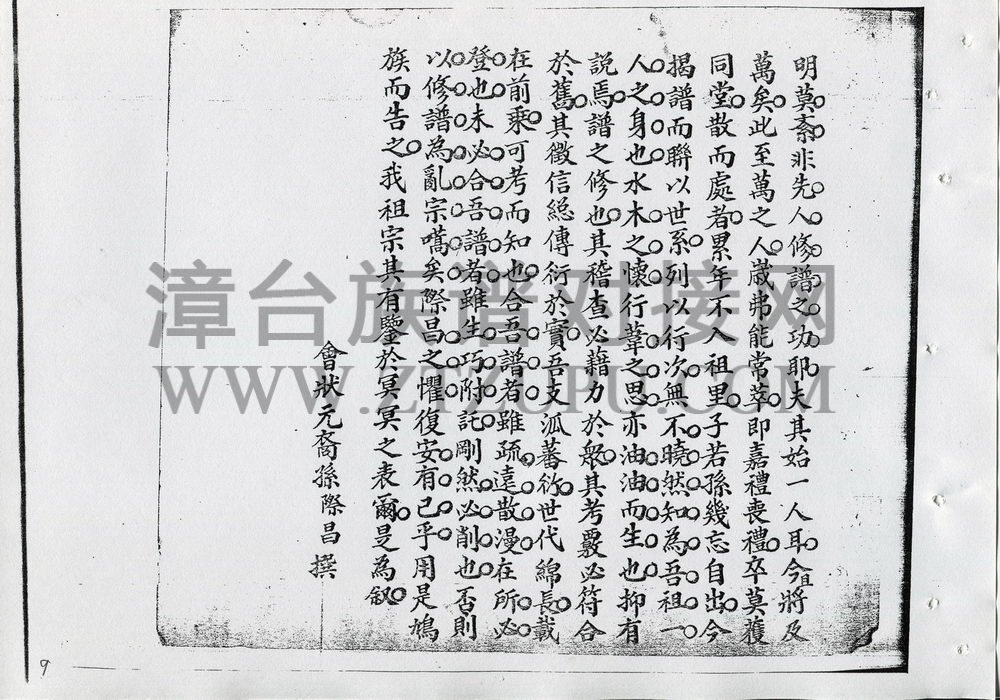 明莫紊非先人修譜之功耶夫其始一人耳今且將及
萬矣此至萬之人歲弗能常萃即嘉禮喪禮卒莫獲
同堂散而處者累年不入祖里子若孫幾忘自出今
揭譜而聯以世系列以行次無不曉然知為吾祖一
人之身也水木之懷行葦之思亦油油而生也抑有
說焉譜之修也其稽查必藉力於眾其考覈必符合
於舊其徵信總傳衍於實吾支派蕃衍世代綿長載
在前乘可考而知也合吾譜者雖疏遠散漫在所必
登也未必合吾譜者雖生巧附託剛然必削也否則
以修譜為亂宗嚆矣際昌之懼復安有已乎用是鳩
族而告之我祖宗其有鑒於冥冥之表爾是為叙
會狀元裔孫際昌 撰
漳台族谱对接网
WWW.ZTZUPU.COM
9